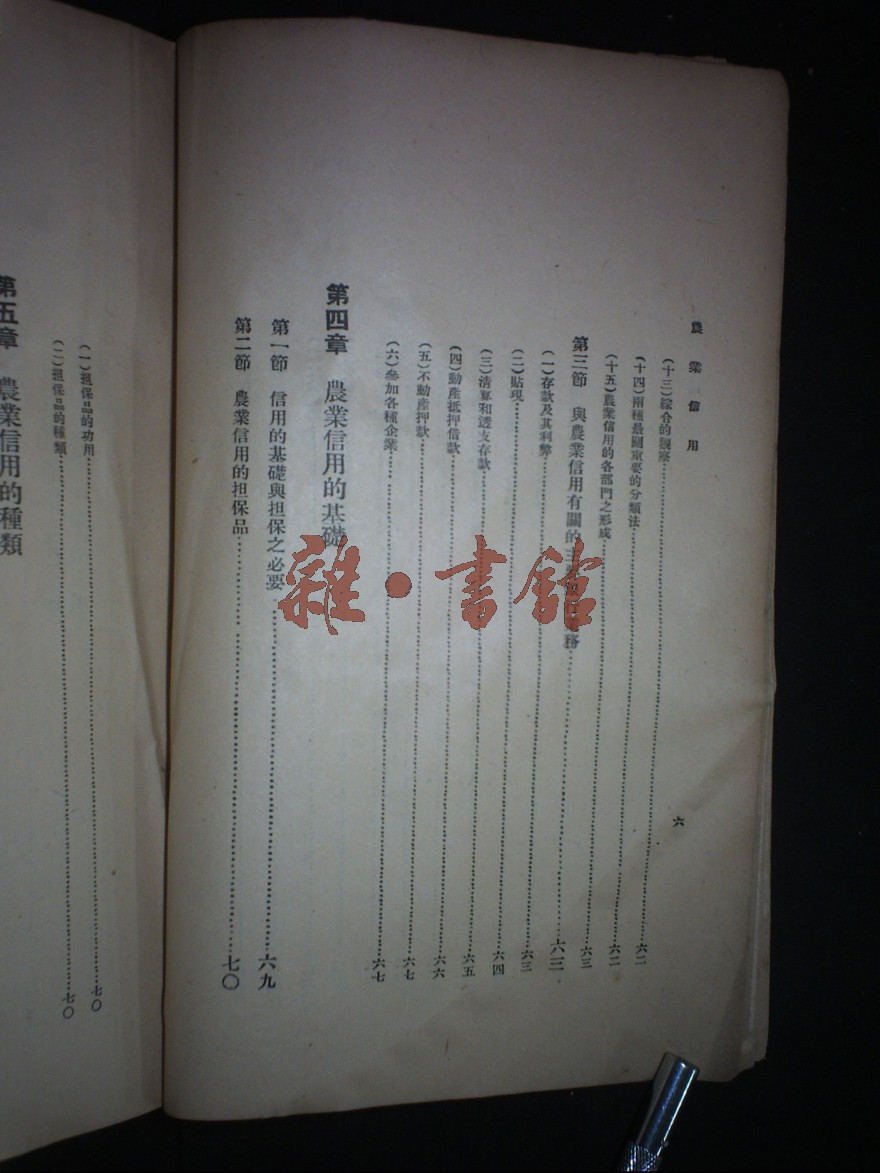 農業信用
六
(十三)綜合的觀察……六二
(十四)兩種最關重要的分類法……六二
(十五)農業信用的各部門之形成……六二
第三節 與農業信用有關的主 務……六三
(一)存款及其利弊……六三
(二)貼現……六三
(三)清算和透支存款……六四
(四)動產抵押借款……六五
(五)不動產押款……六六
(六)參加各種企業……六七
第四章 農業信用的基礎……六七
第一節 信用的基礎與担保之必要……六九
第二節 農業信用的担保品……七〇
(一)担保品的功用……七〇
(二)担保品的種類……七〇
第五章 農業信用的種類
雜·書館